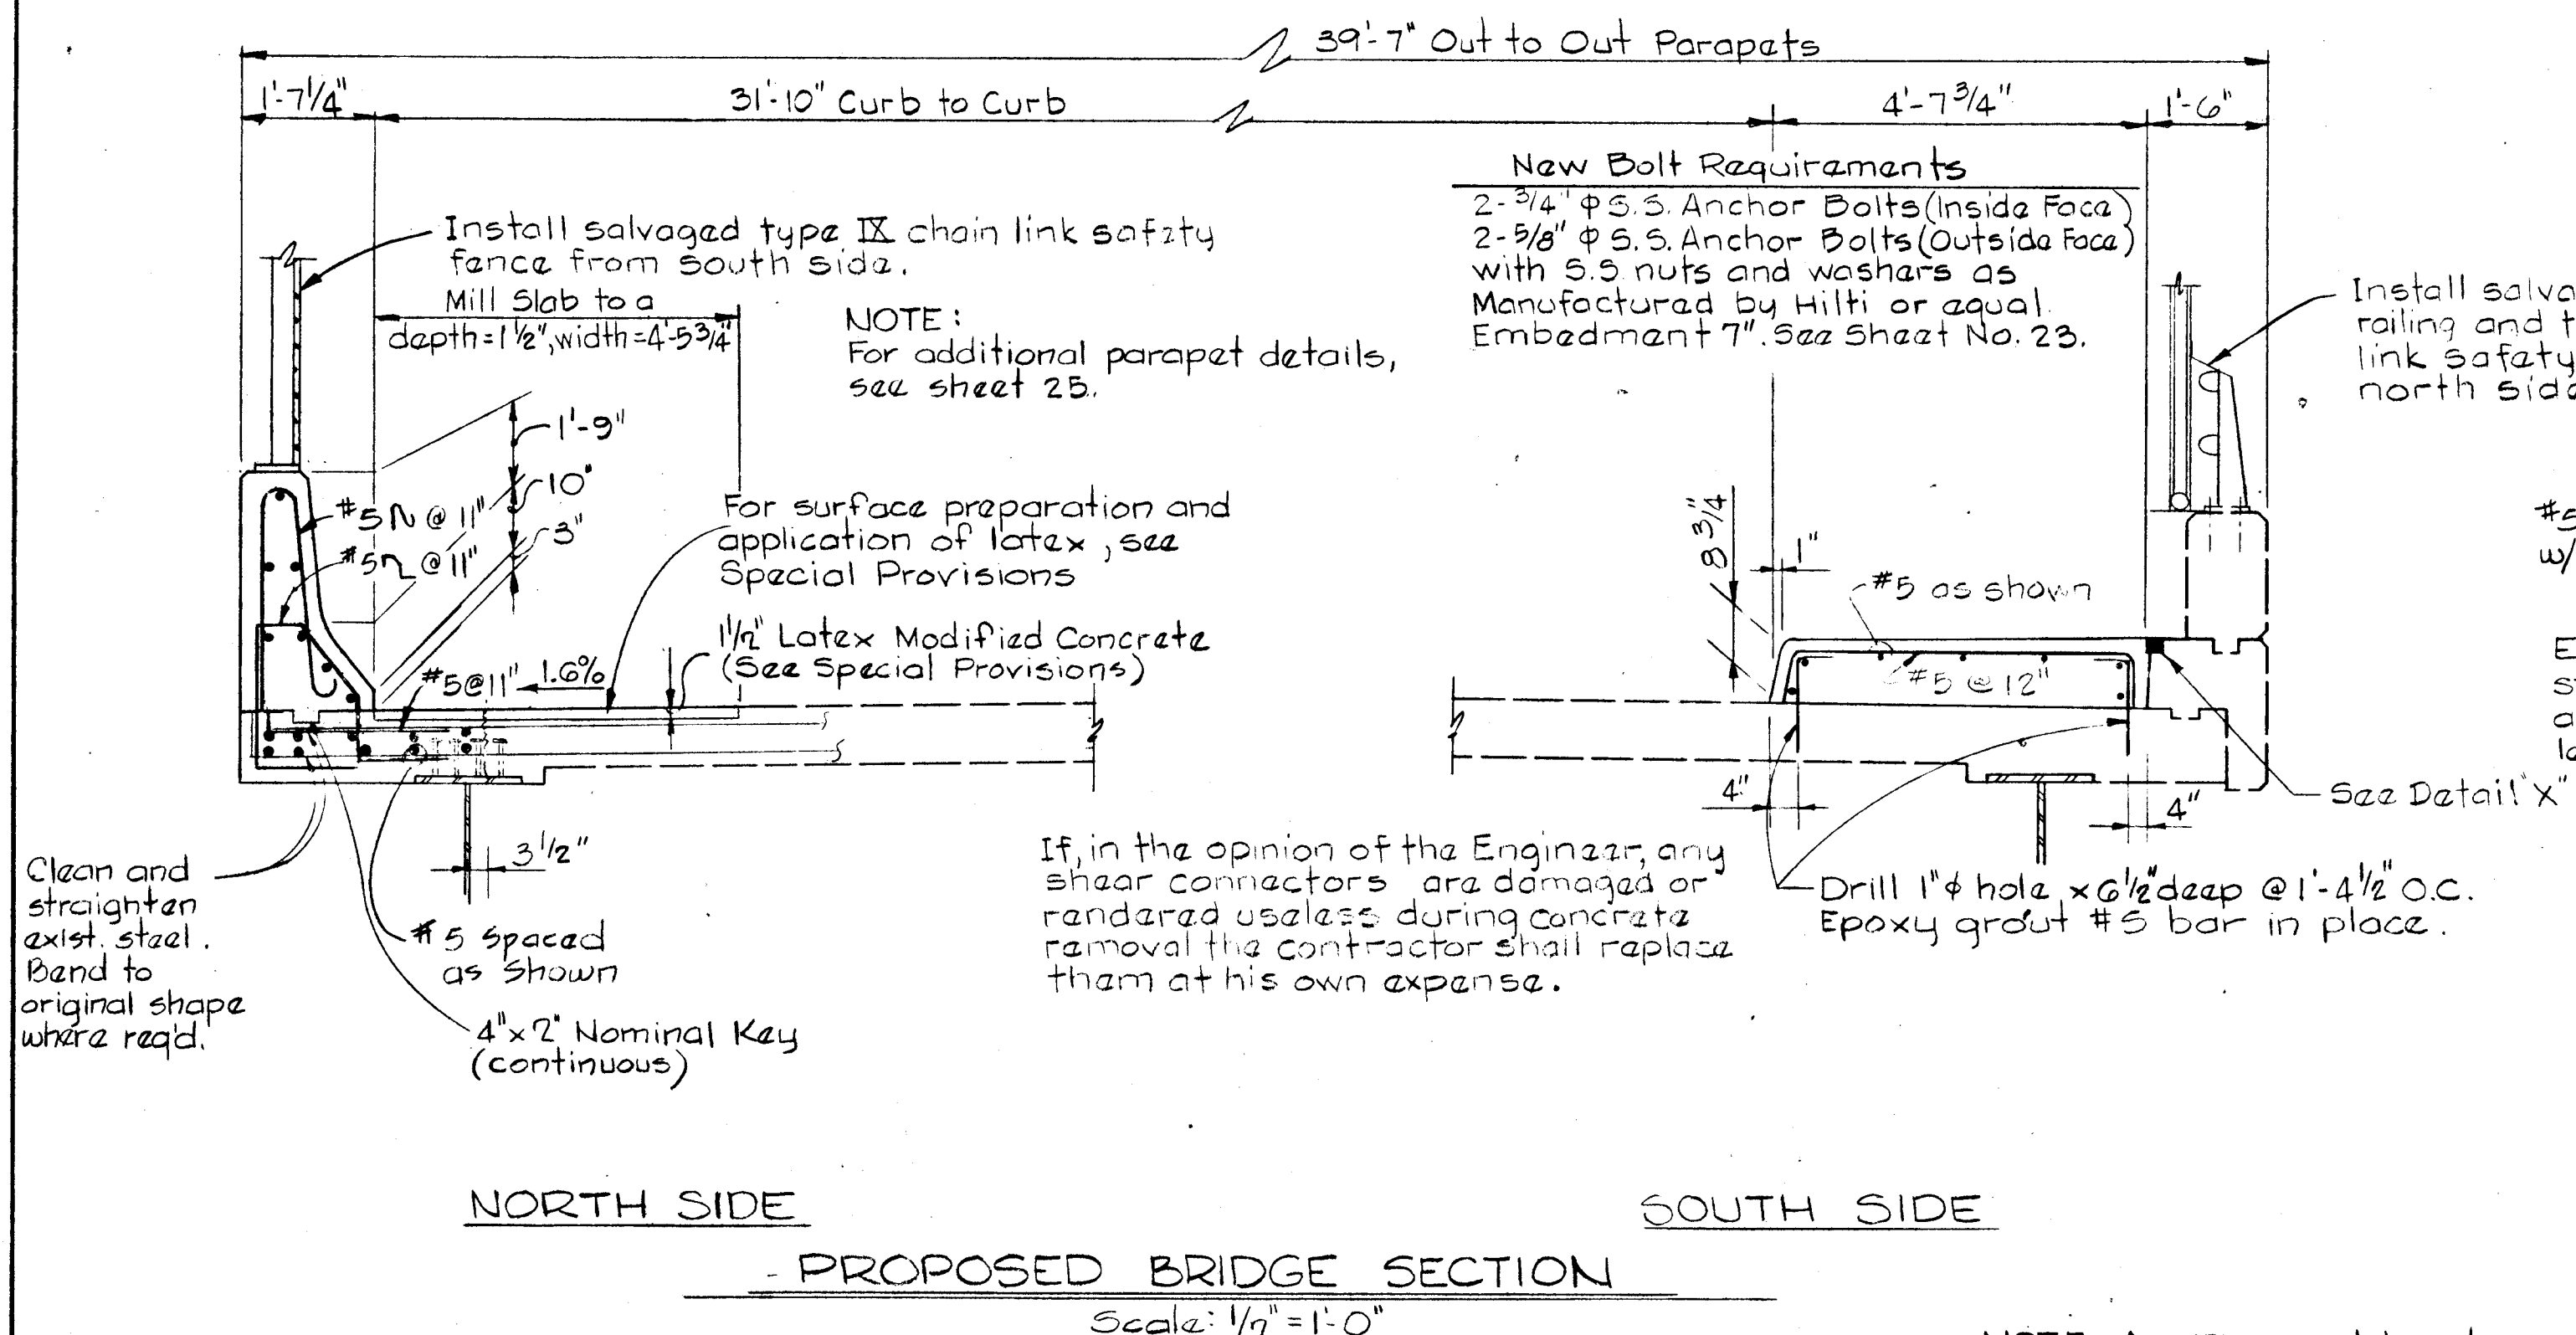 39'-7" Out to Out Parapets
1'-7 1/4"
31'-10" Curb to Curb
4'-7 3/4"
1'-6"
New Bolt Requirements
2-3/4" φ S.S. Anchor Bolts (Inside Face)
2-5/8" φ S.S. Anchor Bolts (Outside Face)
with S.S. nuts and washers as
Manufactured by Hilti or equal.
Embedment 7". See Sheet No. 23.
Install salvaged type IX chain link safety
fence from south side.
Mill Slab to a
depth=1 1/2", width=4'-5 3/4"
NOTE:
For additional parapet details,
see sheet 25.
Install
railing and
link safety
north
1'-9"
10"
3"
#5 @ 11"
#5 @ 11"
For surface preparation and
application of latex, see
Special Provisions
1 1/2" Latex Modified Concrete
(See Special Provisions)
#5@11"
1.6%
8 3/4"
1"
#5 as shown
#5 @ 12"
#5
w/
4"
4"
See Detail "X"
3 1/2"
Clean and
straighten
exist. steel.
Bend to
original shape
where req'd.
#5 spaced
as shown
4"x2" Nominal Key
(continuous)
If, in the opinion of the Engineer, any
shear connectors are damaged or
rendered useless during concrete
removal the contractor shall replace
them at his own expense.
Drill 1"φ hole x 6 1/2" deep @ 1'-4 1/2" O.C.
Epoxy grout #5 bar in place.
NORTH SIDE
SOUTH SIDE
PROPOSED BRIDGE SECTION
Scale: 1/2" = 1'-0"